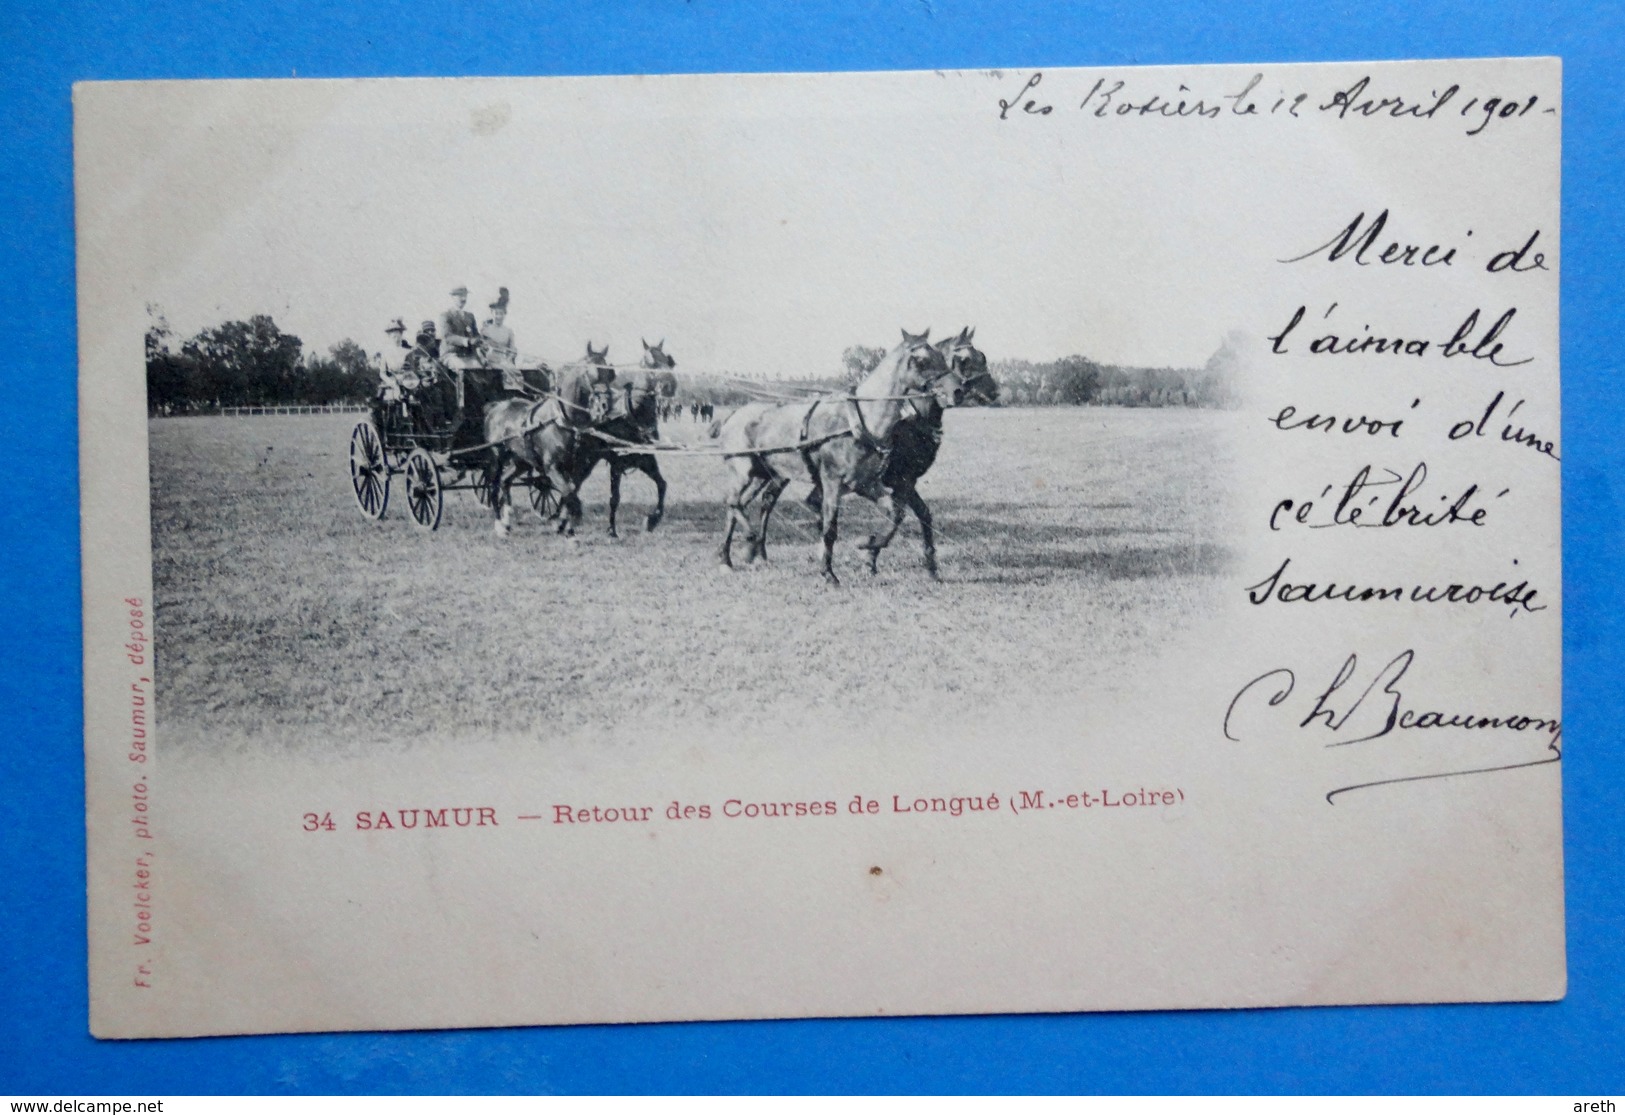 Les Rosiers le 12 Avril 1901-
Merci de
l'aimable
envoi d'une
célébrité
saumuroise,
Ch Beaumont
34 SAUMUR — Retour des Courses de Longué (M.-et-Loire)
Fr. Voelcker, photo. Saumur, déposé
www.delcampe.net
areth